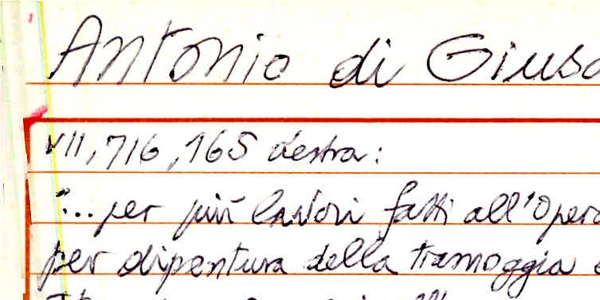 Antonio di Giusa
VII, 716, 165 destra:
"... per più lavori fatti all'Opera
per dipentura della tramoggia e